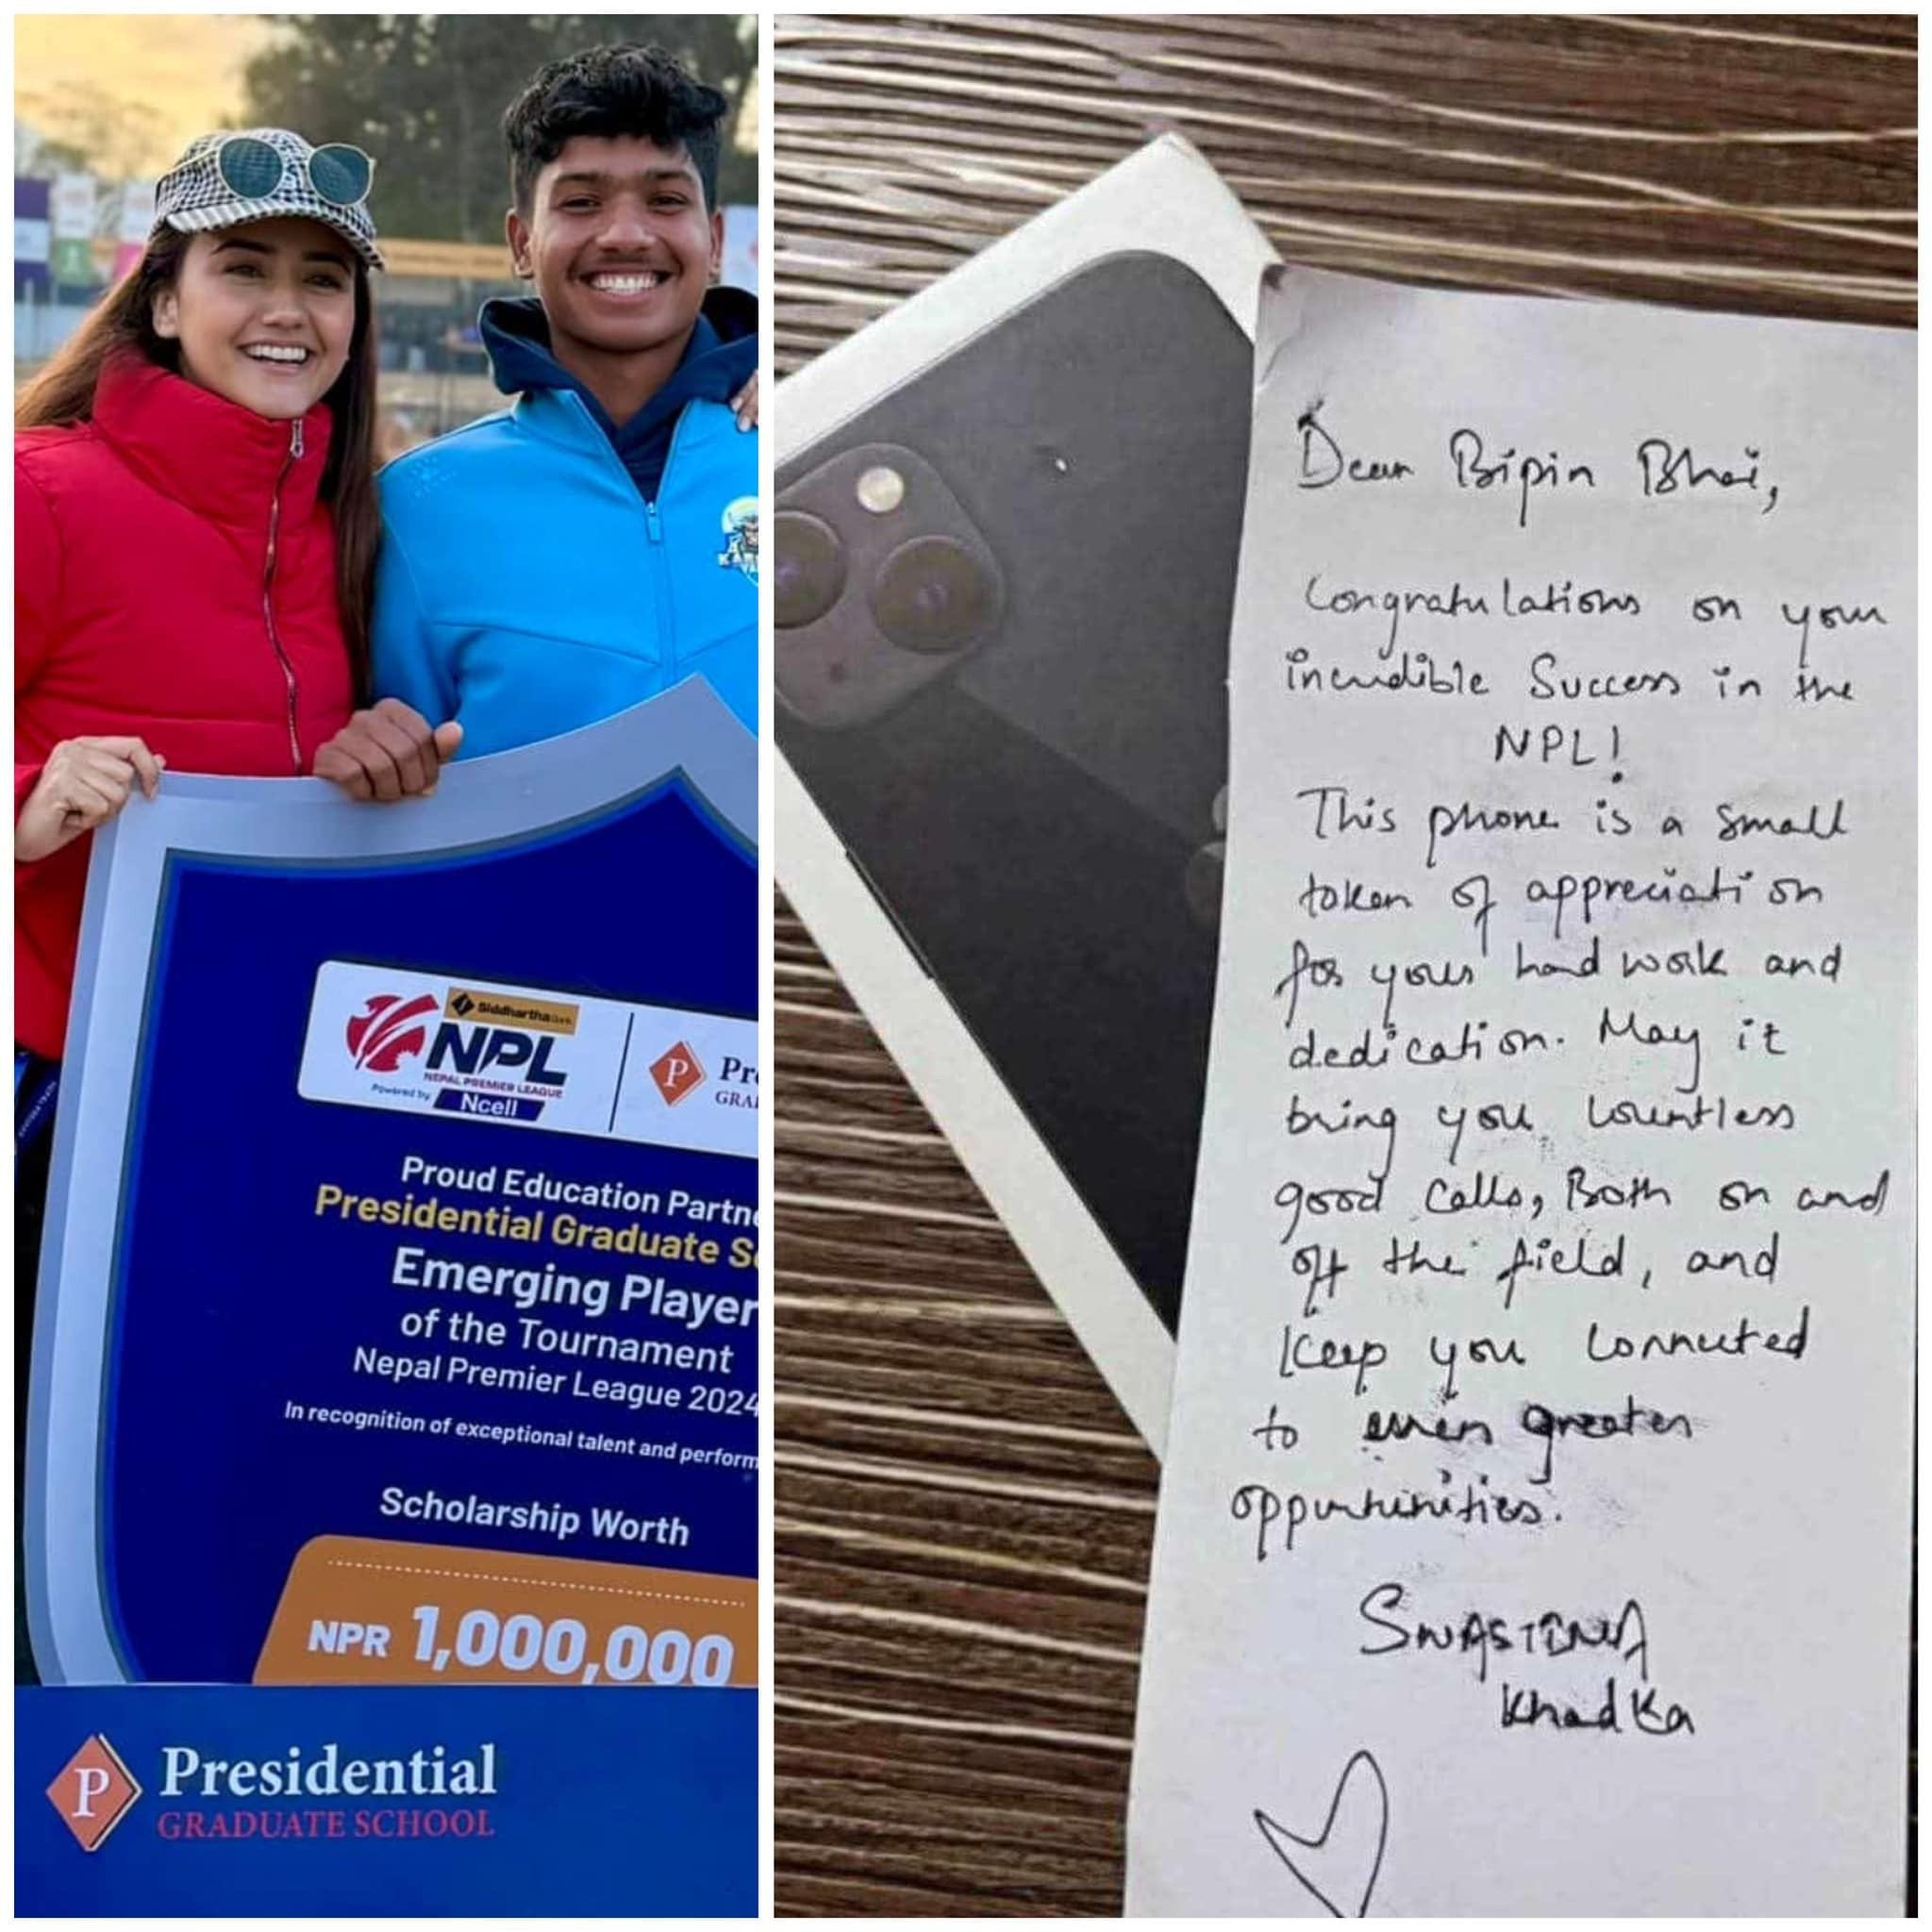 Siddhartha Bank
NPL
NEPAL PREMIER LEAGUE
Powered by
Ncell
P
Proud Education Partne
Presidential Graduate S
Emerging Player
of the Tournament
Nepal Premier League 2024
In recognition of exceptional talent and perform
Scholarship Worth
NPR 1,000,000
P Presidential
GRADUATE SCHOOL
Dear Bipin Bhai,
Congratulations on your
incredible Success in the
NPL!
This phone is a small
token of appreciation
for your hard work and
dedication. May it
bring you countless
good calls, Both on and
off the field, and
Keep you connected
to even greater
oppurtunities.
SWASTIMA
Khadka